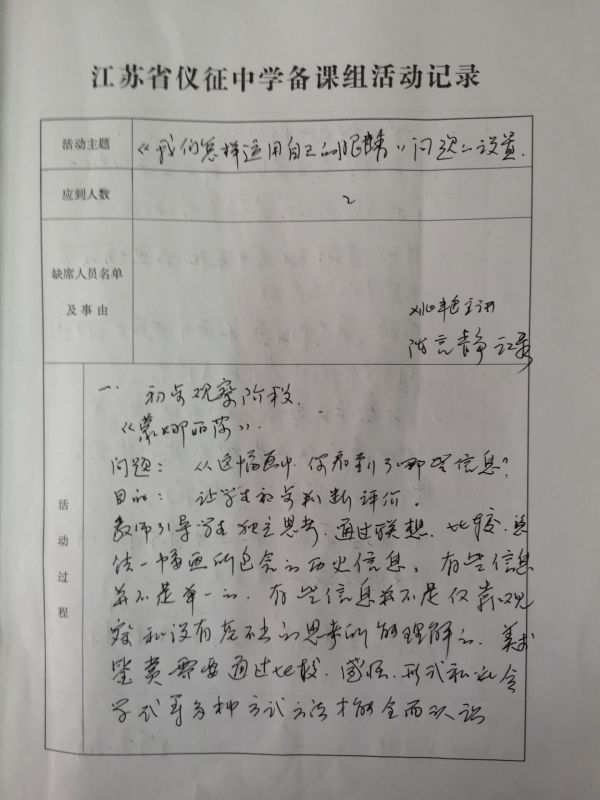 江苏省仪征中学备课组活动记录
活动主题
《我们怎样运用自己的眼睛》问题的设置.
应到人数
2
缺席人员名单
及事由
主讲
陈言静 记录
活动过程
一 初步观察阶段.
《蒙娜丽莎》.
问题: 从这幅画中,你看到了哪些信息?
目的: 让学生初步判断评价。
教师引导学生独立思考.通过联想、比较、总
结一幅画所包含的历史信息。有些信息
并不是单一的.有些信息并不是仅靠观
察和没有根本的思考所能理解的.美术
鉴赏需要通过比较.形式和社会
学式等多种方式方法才能全面认识